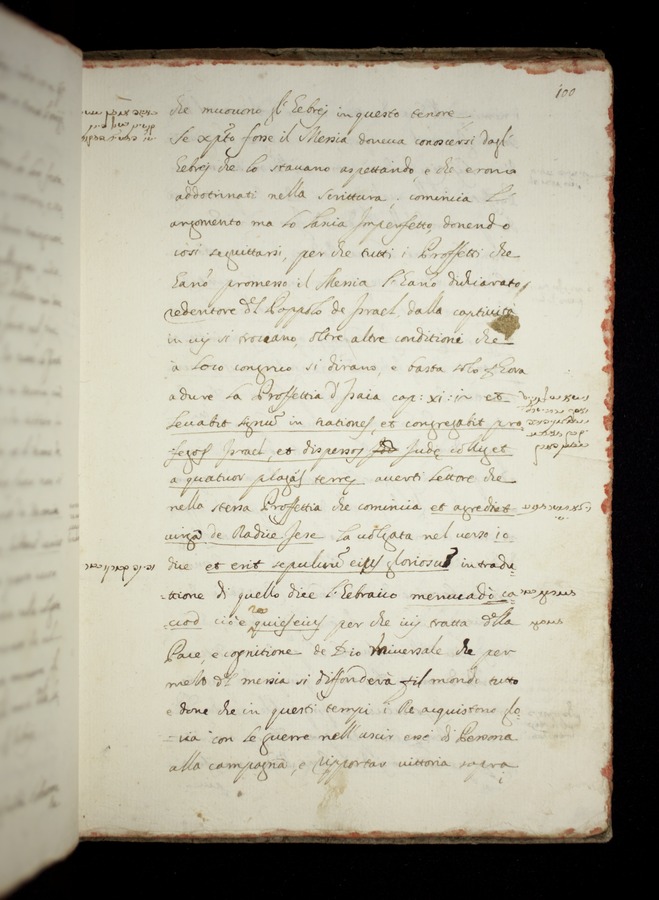 100
che muouono gl'Eebrej in questo tenore
Se xpto fosse il Messia doueua conoscersi dagl'
Eebrej che lo stauano aspettando, e che erono
addotrinati nella Scrittura, comincia
argomento ma lo lascia Imperfetto, douendo
cosi seguittarsi, per che tutti i Proffetti che
hano promesso il Messia l'hano dichiarato
redentore dl Poppolo de Israel, dalla captiuità
in cui si trouano, oltre altre conditioni che
à loco congruo si dirano, e basta solo
adure la Proffettia d'Isaia cap: xi: 12 et
leuabit signu in nationes, et congregabit pro
fugos Israel, et dispersos Jude colliget
a quatuor plagis terrej auerti lettore che
nella stessa Proffettia che comincia et egrediet
uirga de Radice Jese la uolgata nel uerso 10
dice et erit sepulcru eius gloriosu in tradu
ttione di quello dice l'Eebraico menucadò ca
uod cioè requies eius per che iui tratta dlla
Pace, e cognitione de Dio Vniuersale che per
mezo dl messia si diffonderà il mondo tutto
e doue che in questi tempi i Re acquistono glo
ria con le guerre nell'uscir essi di Persona
alla campagna, e ripportar uittoria sopra
i